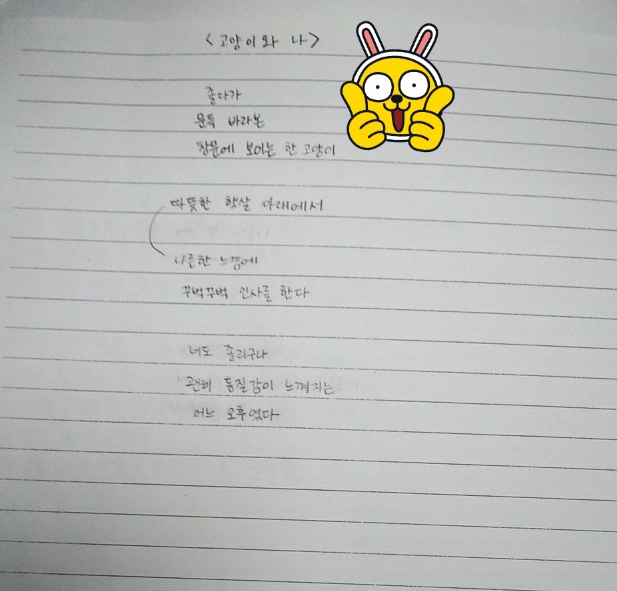 <고양이와 나>
졸다가
문득 바라본
창문에 보이는 한 고양이
따뜻한 햇살 아래에서
나른한 느낌에
꾸벅꾸벅 인사를 한다
너도 졸리구나
괜히 동질감이 느껴지는
어느 오후였다